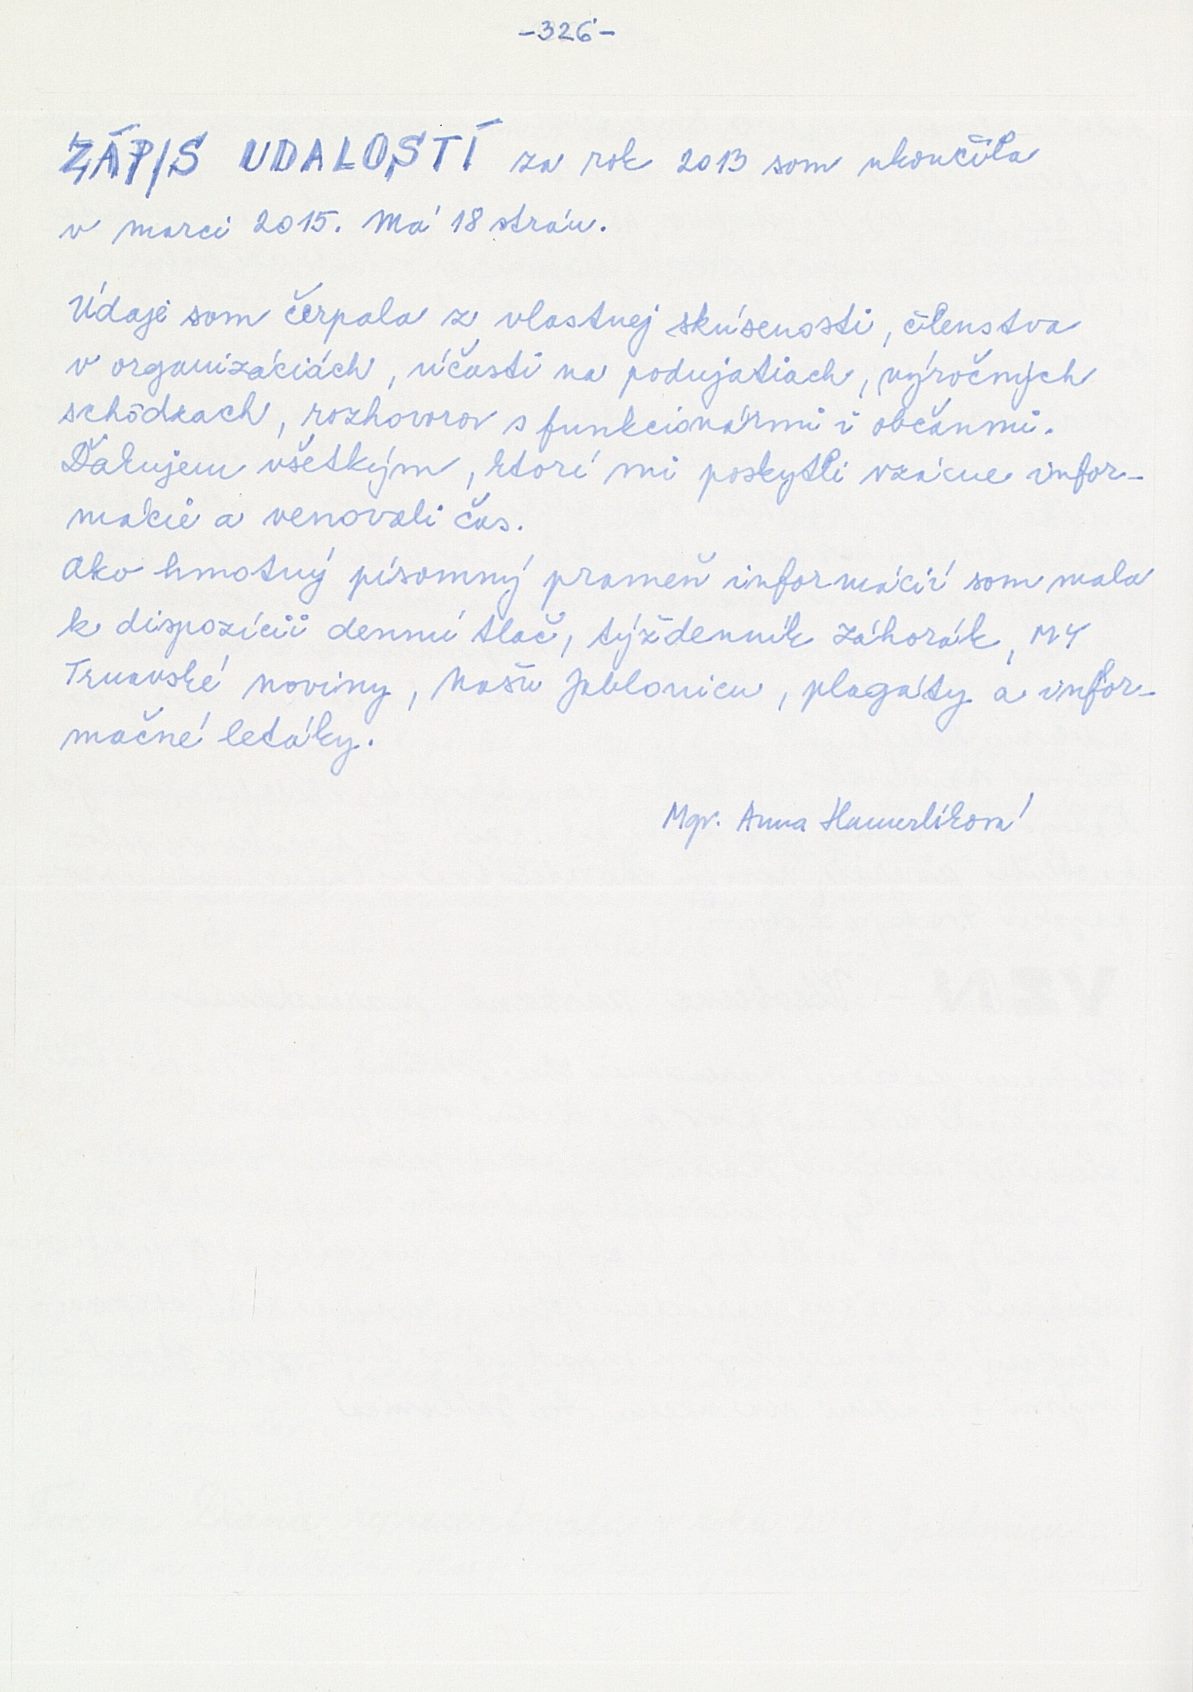 -326-
ZÁPIS UDALOSTÍ za rok 2013 som ukončila
v marci 2015. Má 18 strán.
Údaje som čerpala z vlastnej skúsenosti, členstva
v organizáciách, účasti na podujatiach, výročných
schôdzach, rozhovorov s funkcionármi i občanmi.
Ďakujem všetkým, ktorí mi poskytli vzácne infor-
mácie a venovali čas.
Ako hmotný písomný prameň informácií som mala
k dispozícii dennú tlač, týždenník Záhorák, MY
Trnavské noviny, Našu Jablonicu, plagáty a infor-
mačné letáky.
Mgr. Anna Hamerlíková